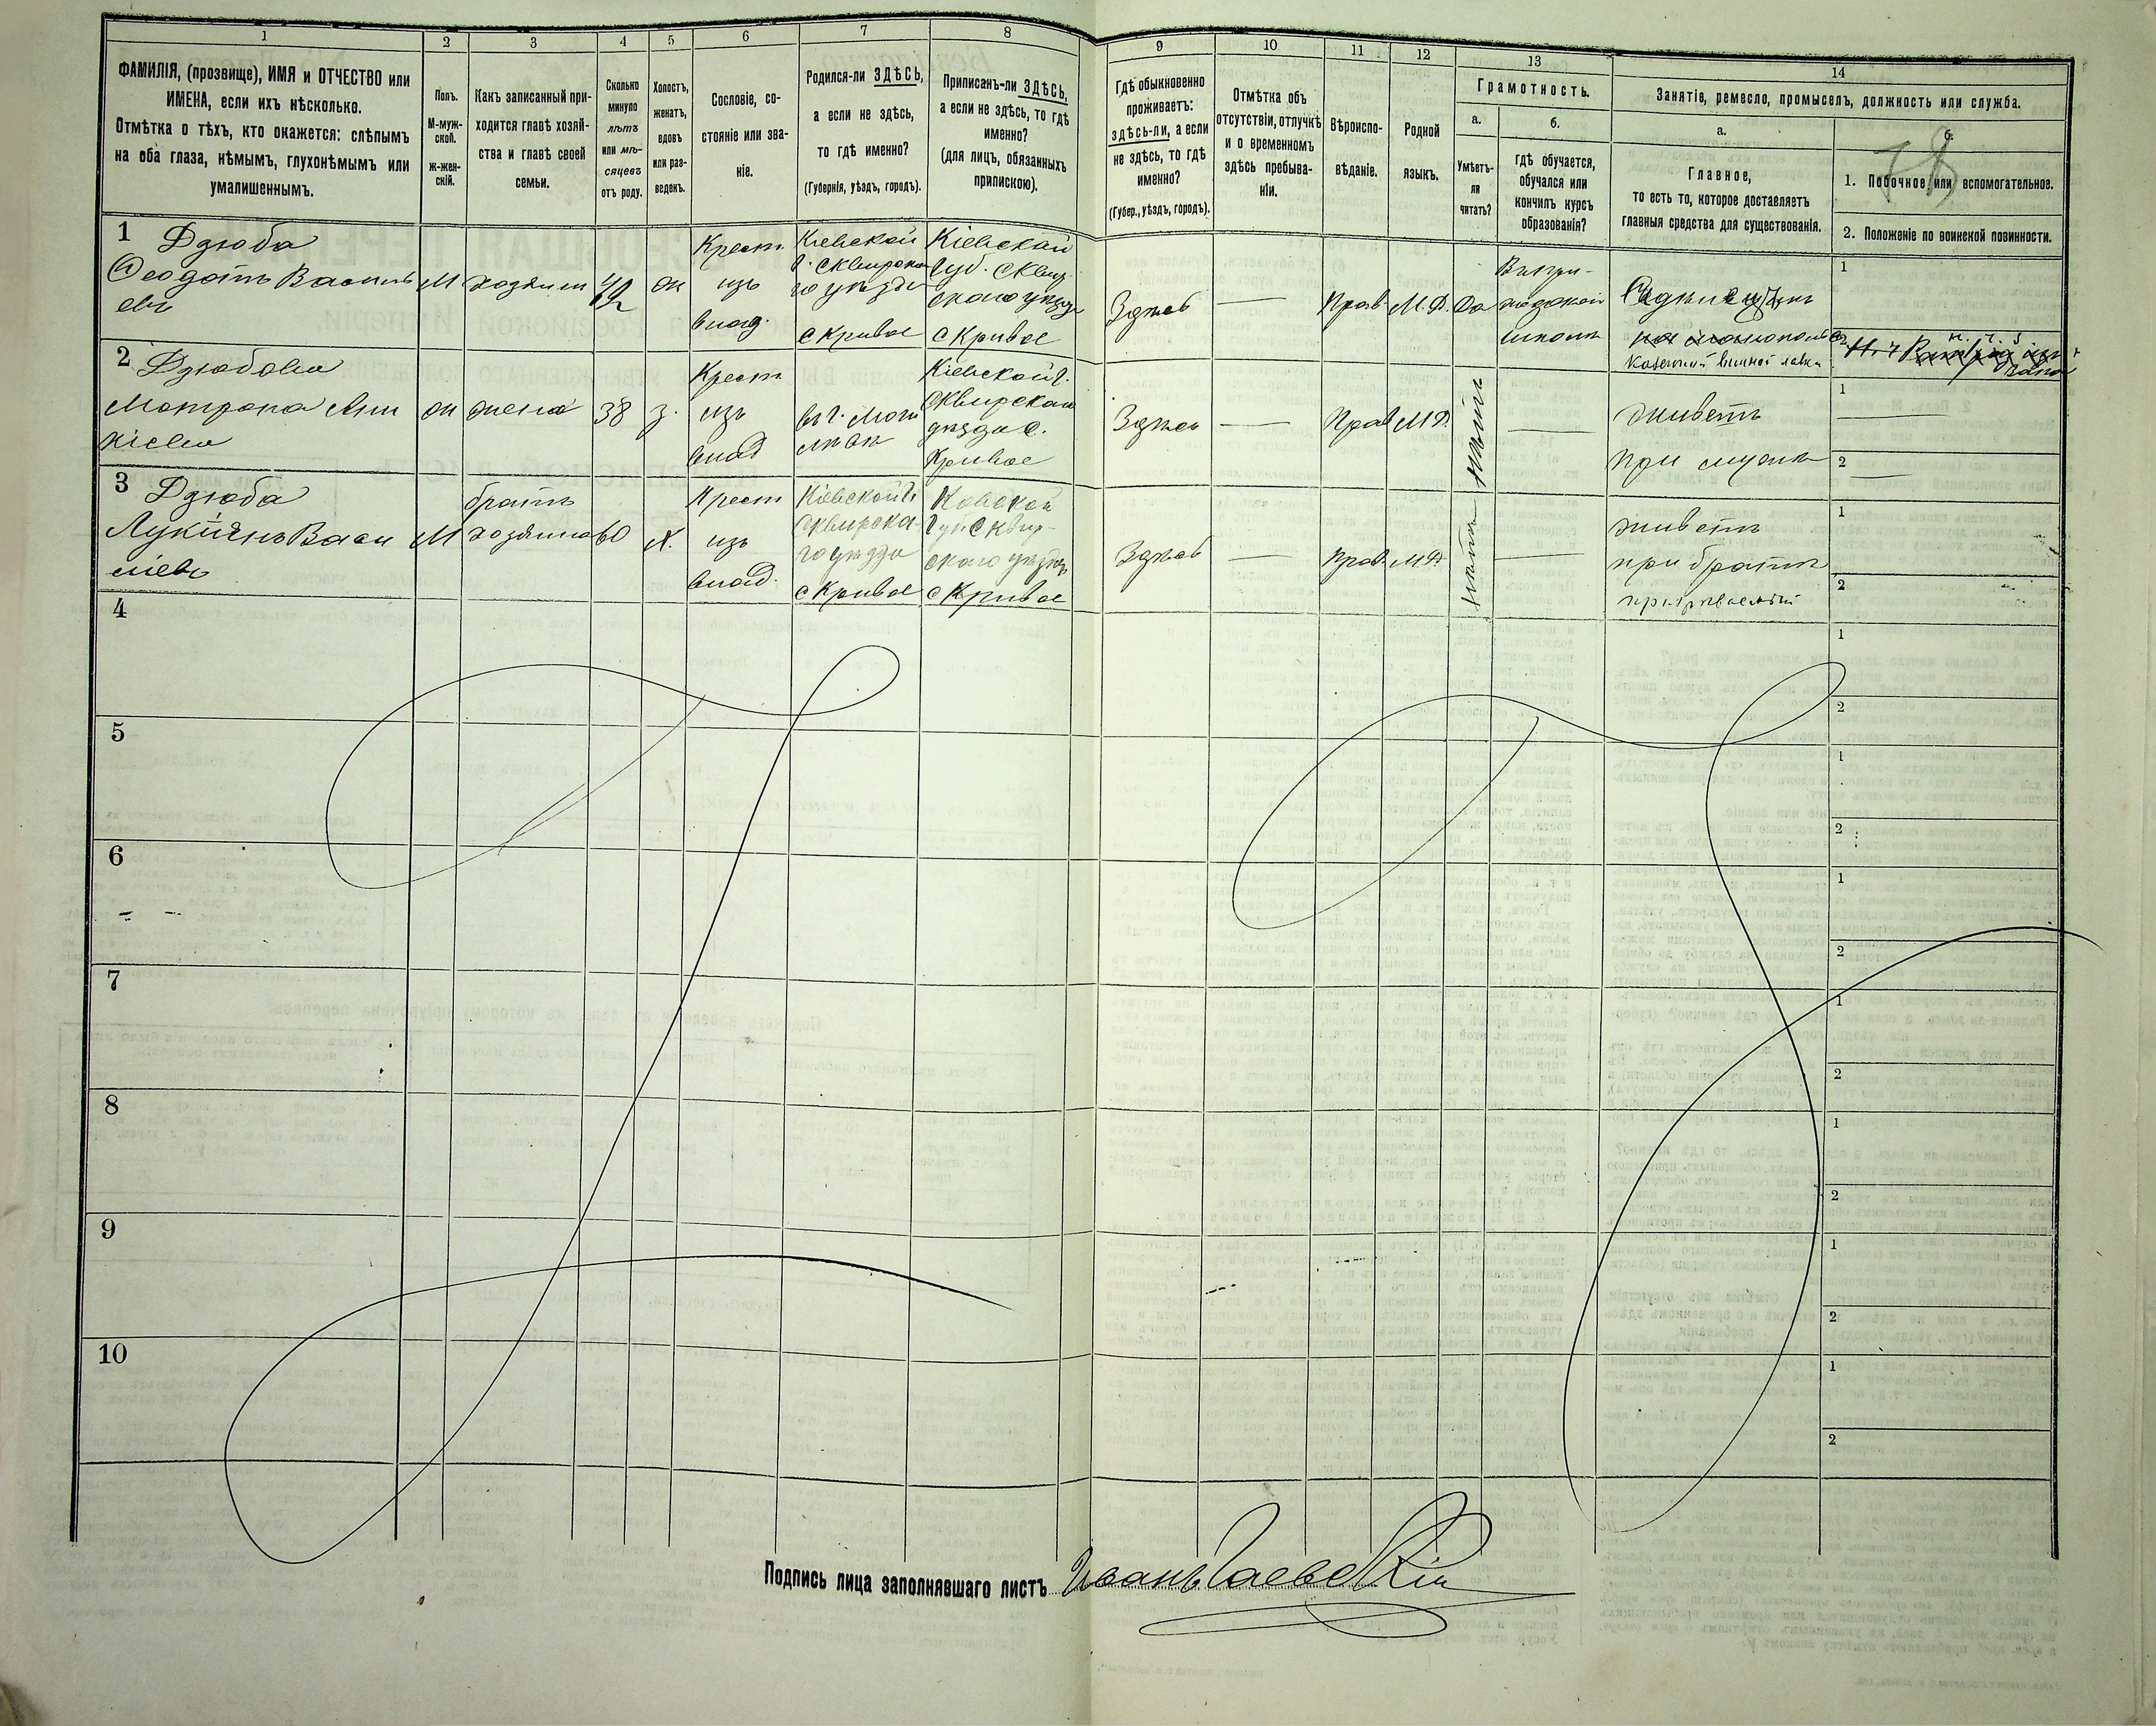 1
2
3
4
5
6
7
8
9
10
11
12
13
14
ФАМИЛІЯ, (прозвище), ИМЯ и ОТЧЕСТВО или
ИМЕНА, если ихъ нѣсколько.
Отмѣтка о тѣхъ, кто окажется: слѣпымъ
на оба глаза, нѣмымъ, глухонѣмымъ или
умалишеннымъ.
Полъ.
М-муж-
ской.
ж-жен-
скій.
Какъ записанный при-
ходится главѣ хозяй-
ства и главѣ своей
семьи.
Сколько
минуло
лѣтъ
или мѣ-
сяцевъ
отъ роду.
Холостъ,
женатъ,
вдовъ
или раз-
веденъ.
Сословіе, со-
стояніе или зва-
ніе.
Родился-ли ЗДѢСЬ,
а если не здѣсь,
то гдѣ именно?
(Губернія, уѣздъ, городъ).
Приписанъ-ли ЗДѢСЬ,
а если не здѣсь, то гдѣ
именно?
(для лицъ, обязанныхъ
припискою).
Гдѣ обыкновенно
проживаетъ:
здѣсь-ли, а если
не здѣсь, то гдѣ
именно?
(Губер., уѣздъ, городъ).
Отмѣтка объ
отсутствіи, отлучкѣ
и о временномъ
здѣсь пребыва-
ніи.
Вѣроиспо-
вѣданіе.
Родной
языкъ.
Грамотность.
а.
Умѣетъ-
ли
читать?
б.
гдѣ обучается,
обучался или
кончилъ курсъ
образованія?
Занятіе, ремесло, промыселъ, должность или служба.
а.
Главное,
то есть то, которое доставляетъ
главныя средства для существованія.
б.
1. Побочное или вспомогательное.
2. Положеніе по воинской повинности.
1
Дзюба
Ѳеодотъ Василь
евъ
М
хозяин
42
ж
Крест.
изъ
влад.
Кіевской
г. Сквирска
го уѣзда
с Кривое
Кіевской
Губ. Сквир-
скаго уѣзда
с Кривое
Здѣсь
Прав.
М.Р.
Да
школѣ
казенной винной лавки
1
2
2
Дзюбова
Матрона
ж
жена
38
з.
Крест
изъ
влад
Кіевской г.
Сквирскаго
уѣзда с.
Кривое
Здѣсь
Прав
М.Р.
нѣтъ
живетъ
при мужѣ
1
2
3
Дзюба
Лукіянъ Васи
ліевъ
М
братъ
хозяина
60
х.
Крест
изъ
влад.
Кіевской г.
Сквирска-
го уѣзда
с Кривое
Кіевской
Губ. Сквир-
скаго уѣзда
с Кривое
Здѣсь
Прав.
М.Р.
нѣтъ
живетъ
при братѣ
1
2
4
1
2
5
1
2
6
1
2
7
1
2
8
1
2
9
1
2
10
1
2
Подпись лица заполнявшаго листъ Иванъ Гаевскій